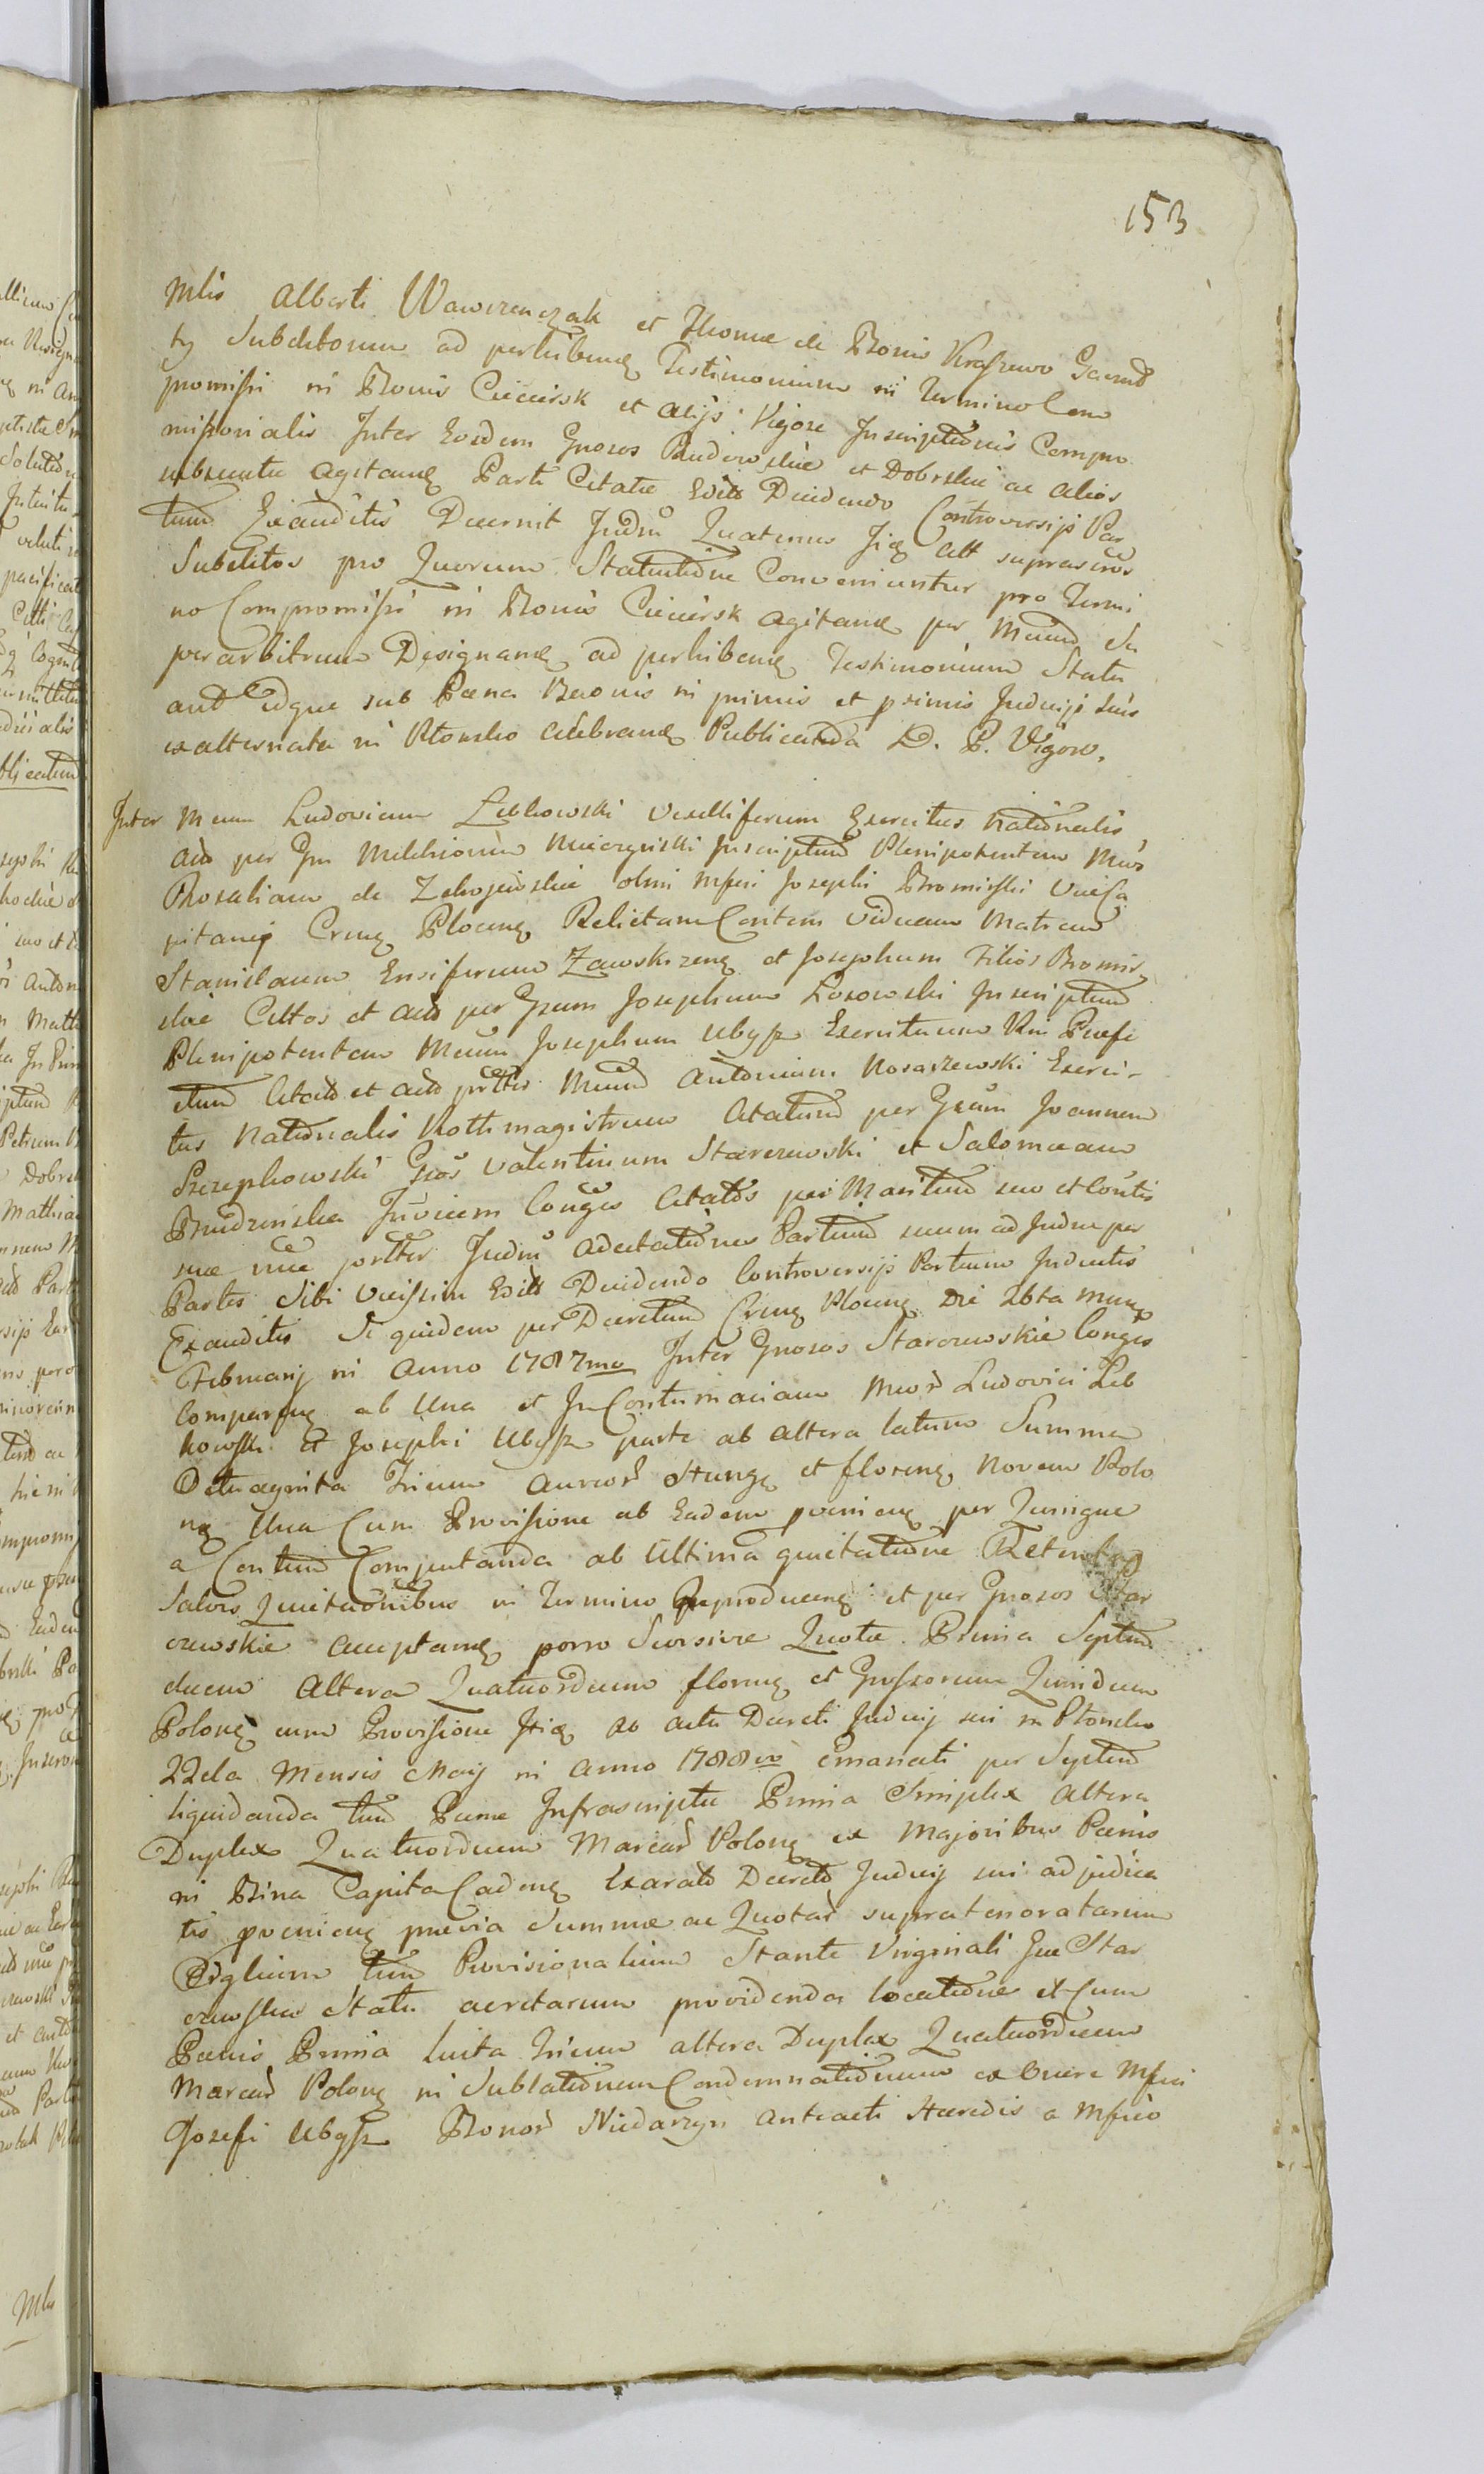 153
Mlis Alberti Wawrzenczak et Thomæ de Bonis Kraszewo Gaund
ty Subditorum ad perhibenđ Testimonium in Termino Com
promissi in Bonis Cieciersk et alijs Vigore Inscriptionis Compro
missorialis Inter Eosdem Gnosos Rudowskie et Dobrskie ac alios
subsecuta agitanđ Parte Citatæ Edđ Decidendo Controversijs Par
tium Exauditis Decernit Judm Quatenus Jiđ Att suprascros
Subditos pro Quorum Statuitione Conveniuntur pro Termi
no Compromissi in Bonis Cieciersk agitanđ per Mcum Su
perarbitrum Designanđ ad perhibenđ Testimonium Statu
ant idque sub Pæna Banonis in primis et primis Judicijs suis
ex alternata in Płonsko celebranđ Publicanda D. P. Vigore.
Inter Mcum Ludovicum Lebkowski Vexilliferum Exercitus Nationalis
Actđ per Gm Melchiorum Mieczyński Inscriptum Plenipotentem Mcos
Rosaliam de Zakrzewskie olim Mfici Josephi Bromirski ViceCa
pitanej Crenđ Plocenđ Relictam Contem Viduam Matrem
Stanislaum Ensiferum Zawskrzenđ et Josephum Filios Bromir
skie Cittos et Actđ per Gsum Josephum Losowski Inscriptum
Plenipotentem Mcum Josephum Ubysz Exercituum Rni Præfe
ctum Citatđ et actđ prtter Mcum Antonium Nosarzewski Exerci-
tus Nationalis Rothmagistrum Citatum per Gsum Joannem
Szczepkowski Gsos Valentinum Starczewski et Salomeam
Budzinska Invicem Conges Citatos per Maritum suo et Contis
suæ nie prtter Judm Adcitationes Partium suum ad Judm per
Partes Sibi Vicissim Edđ Decidendo Controversijs Partium Inductis
Exauditis Si quidem per Decretum Crenđ Plocenđ Die 26ta Mensđ
Februarij in Anno 1787mo Inter Gnosos Starczewskie Conges
Comparenđ ab Una et In Contumaciam Mcoř Ludovici Leb
kowski et Josephi Ubysz parte ab altera latum Summa
Octuaginta Trium Aureoř Hungđ et florenđ Novem Polo
nđ Una Cum Provisione ab Eadem provenienđ per Quinque
a Centum Computanda ab Ultima quietatione Retenta
Salvis Quietationibus in Termino Reproducenđ et per Gnosos Star
czewskie acceptanđ porro Seorsive Quotæ Prima Septem
decem Altera Quatuordecem florenđ et Grossorum Quindecem
Polonđ cum Provisione Jiđ ab Actu Decreti Judicij sui in Płonsko
22da Mensis Maij in Anno 1788vo Emanati per Septem
liquidanda tum Pænæ Infrascriptæ Prima Simplex Altera
Duplex Quatuordecem Marcař Polonđ ex Majoribus Pænis
in Bina Capita Cadenđ Exarato Decreto Judicij sui adjudica
tis provenienđ prævia Summæ ac Quotař supratenoratarum
Origlium tum Provisionalium Stante Virginali Gnæ Star
czewska Statu accretarum providenda locatione et Cum
Pænis Prima luita Trium altera Duplex Quatuordecem
Marcař Polonđ in Sublationem Condemnationum ex Onere Mfici
Josefi Ubysz Bonoř Niedarzyn Anteacti Hæredis a Mfico